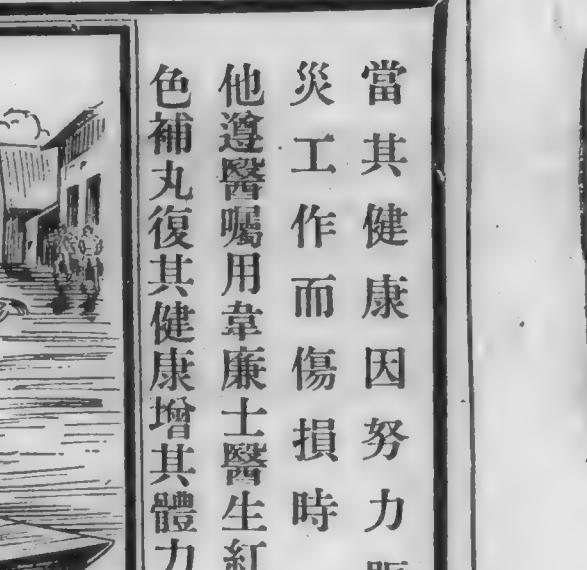 當其健康因努力
災工作而傷損時
他遵醫囑用韋廉士醫生紅
色補丸復其健康增其體力